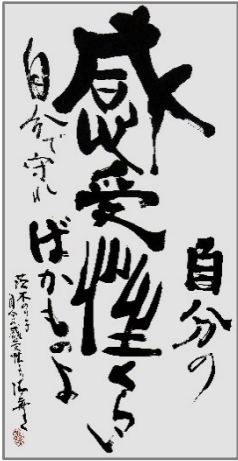 自分の
感受性くらい
自分で守れ
ばかものよ
茨木のり子
自分の感受性くらい